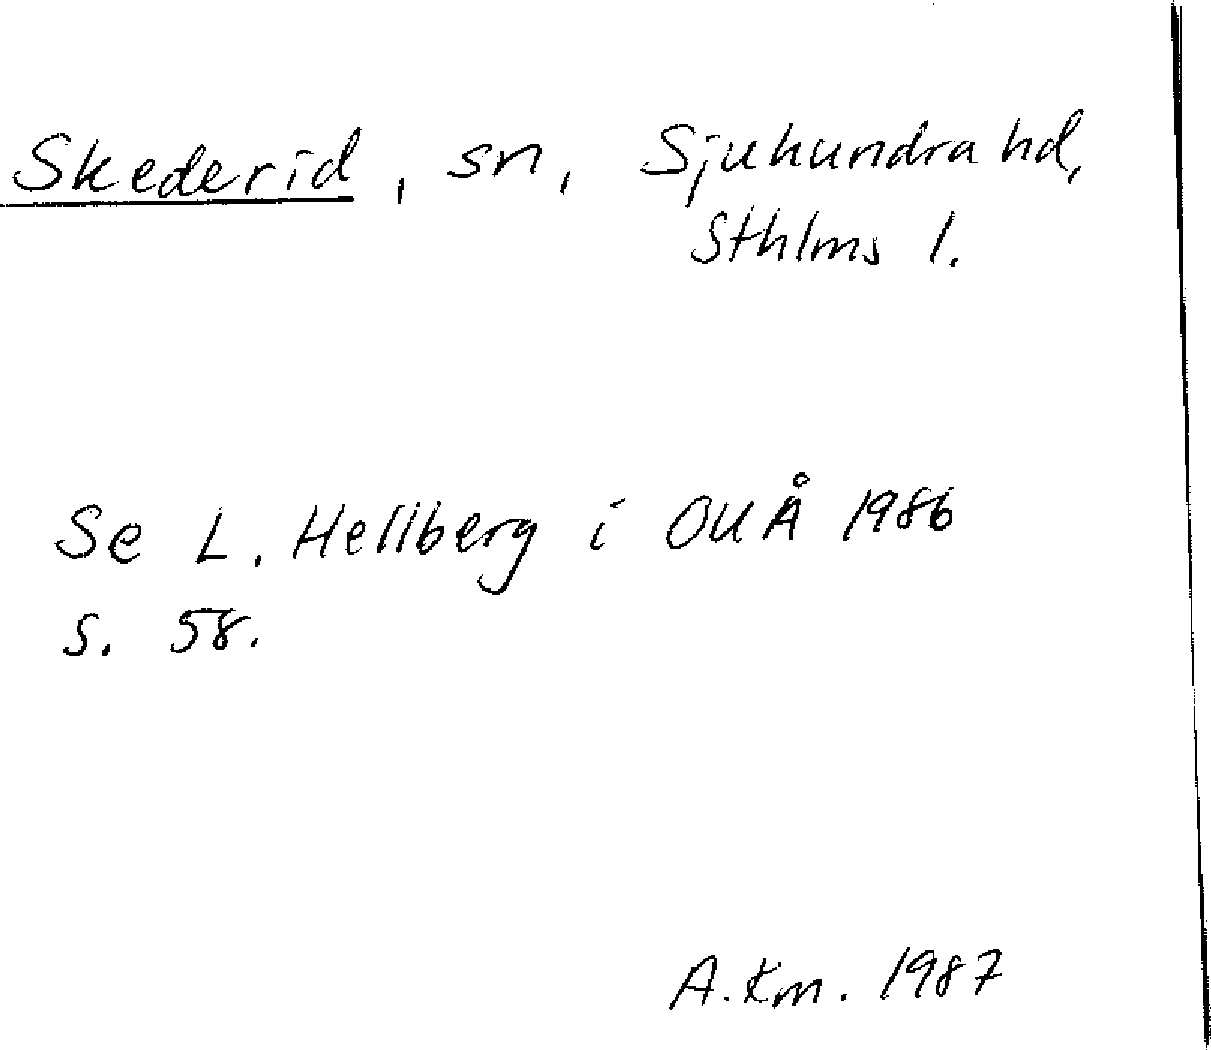 Skederid, sn, Sjuhundra hd,
Sthlms l.
Se L. Hellberg i OUÅ 1986
s. 58.
A. Km. 1987